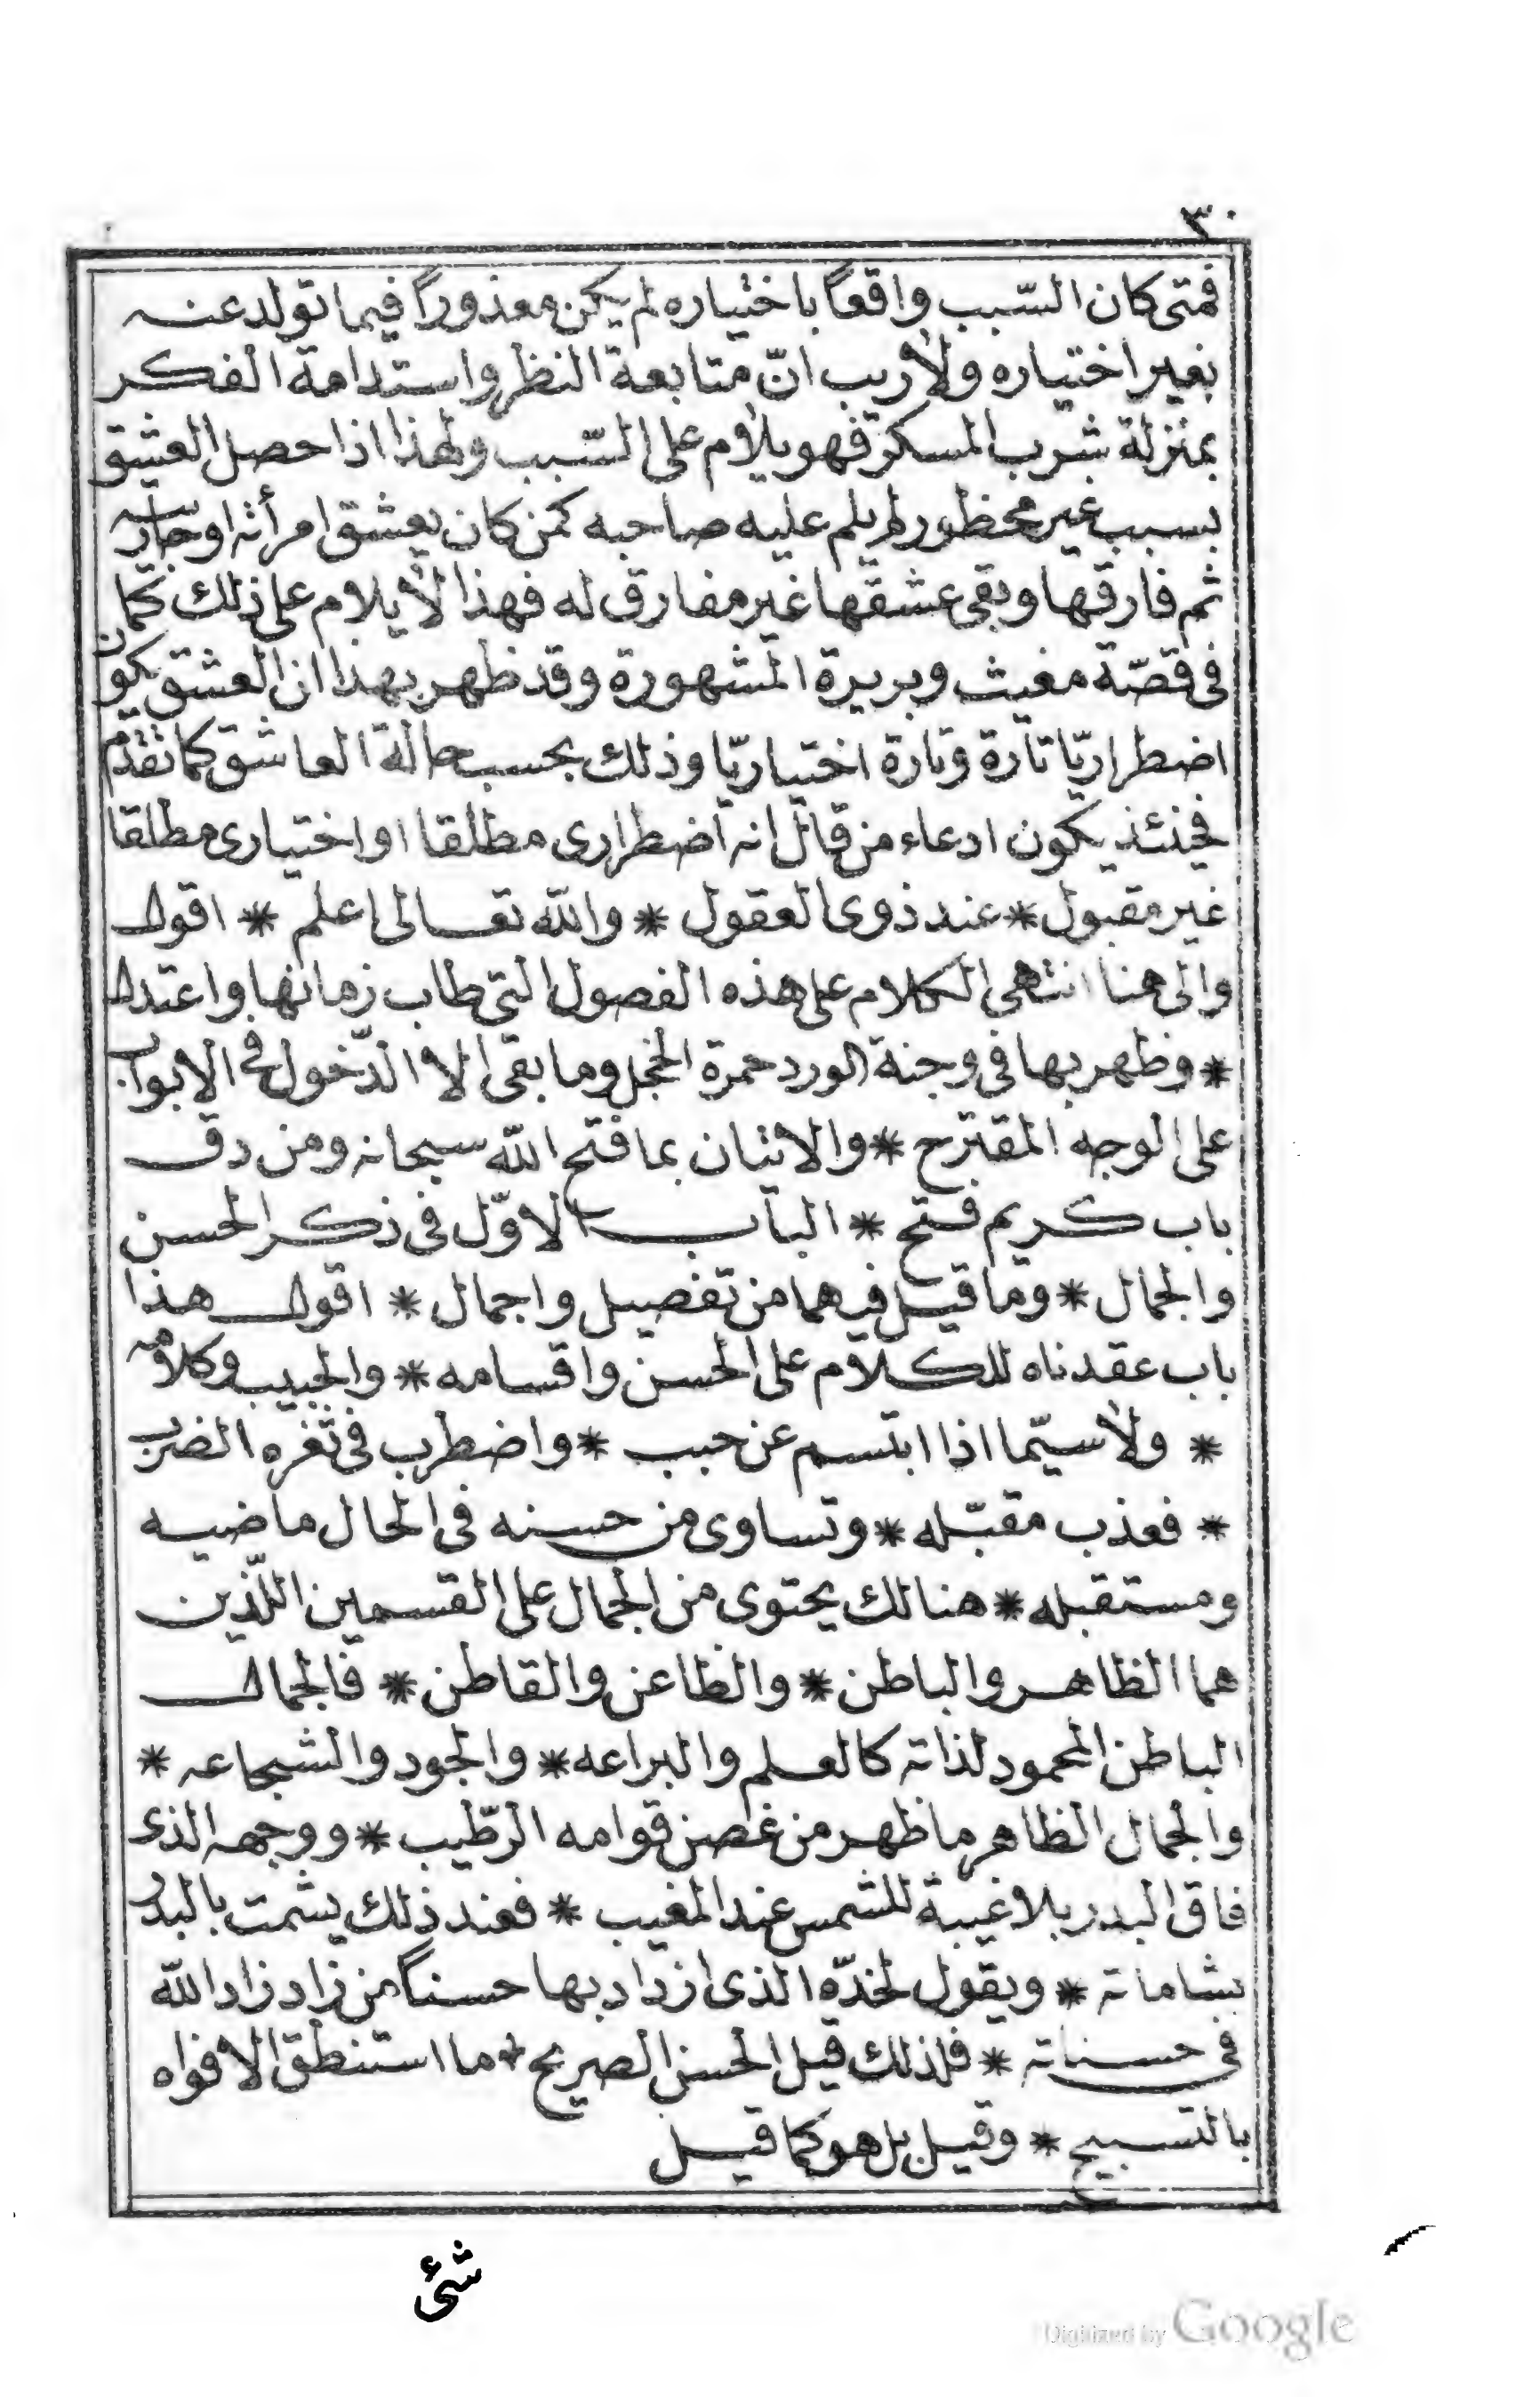 ٣٠
فمتى كان السّبب واقعاً باختياره لم يكن معذوراً فيما تولد عنه
بغير اختياره ولا ريب انّ متابعة النظر واستدامة الفكر
بمنزلة شرب المسكر فهو يلام على السّبب ولهذا اذا حصل العشق
بسبب غير محظور لم يلم عليه صاحبه كمن كان يعشق امرأته او جاريته
ثم فارقها وبقى عشقها غير مفارق له فهذا لا يلام على ذلك كما
فى قصّة مغيث وبريرة المشهورة وقد ظهر بهذا ان العشق يكون
اضطراريّا تارة وتارة اختياريّا وذلك بحسب حالة العاشق كما تقدّم
فحينئذ يكون ادعاء من قال انه اضطرارى مطلقا او اختيارى مطلقا
غير مقبول * عند ذوى العقول * والله تعالى اعلم * اقول
والى هنا انتهى الكلام على هذه الفصول التى طاب زمانها واعتدل
* وظهر بها فى وجنة الورد حمرة الخجل وما بقى الا الدّخول فى الابواب
على الوجه المقترح * والاتيان بما فتح الله سبحانه ومن دق
باب كريم فتح * الباب الاوّل فى ذكر الحسن
والجمال * وما قيل فيهما من تفصيل واجمال * اقول هذا
باب عقدناه للكلام على الحسن واقسامه * والحبيب وكلامه
* ولا سيّما اذا ابتسم عن حبب * واضطرب فى ثغره الضرب
* فعذب مقبّله * وتساوى من حسنه فى الحال ماضيه
ومستقبله * هنالك يحتوى من الجمال على القسمين اللّذين
هما الظاهر والباطن * والظاعن والقاطن * فالجمال
الباطن المحمود لذاته كالعلم والبراعه * والجود والشجاعه *
والجمال الظاهر ما ظهر من غصن قوامه الرّطيب * ووجهه الذى
فاق البدر بلا غيبة للشمس عند المغيب * فعند ذلك يشمت بالبدر
بشاماته * ويقول لخدّه الذى ازداد بها حسناً من زاد زاد الله
فى حسناته * فلذلك قيل الحسن الصريح * ما استنطق الافواه
بالتسبيح * وقيل بل هو كما قيل
شئ
Digitized by Google